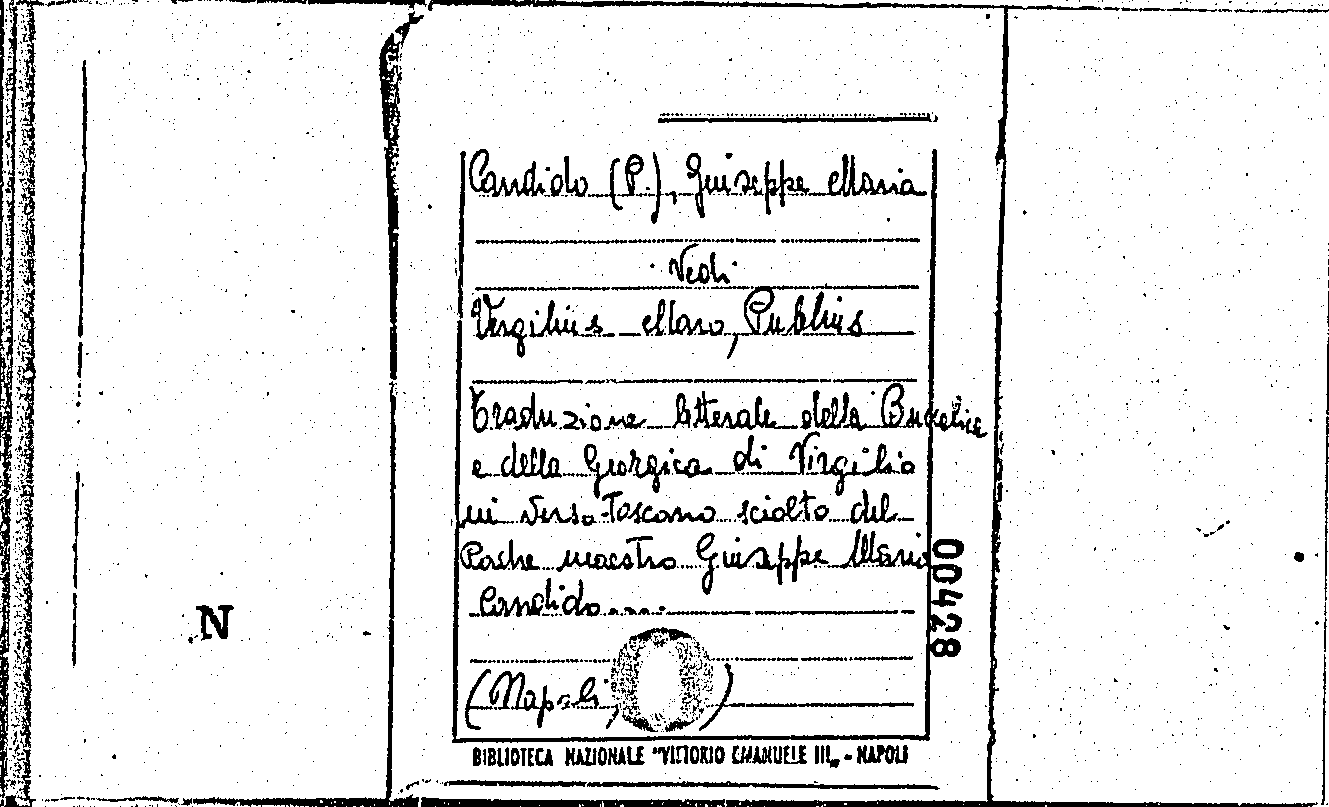 Candido (P.), Giuseppe Maria
Vedi
Vergilius Maro, Publius
Traduzione letterale della Buccolica
e della Georgica di Virgilio
in verso Toscano sciolto del
Padre maestro Giuseppe Maria
Candido....
(Napoli, )
BIBLIOTECA NAZIONALE "VITTORIO EMANUELE III„ - NAPOLI
00428
N